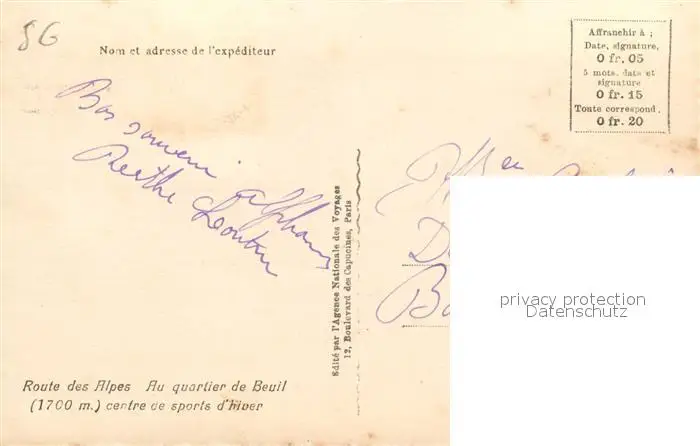 86
Nom et adresse de l'expéditeur
Affranchir à ;
Date, signature,
0 fr. 05
5 mots, date et
signature
0 fr. 15
Toute correspond.
0 fr. 20
Bon souvenir
Berthe
Mlle
Edité par l'Agence Nationale des Voyages
12, Boulevard des Capucines, Paris
privacy protection
Datenschutz
Route des Alpes Au quartier de Beuil
(1700 m.) centre de sports d'hiver